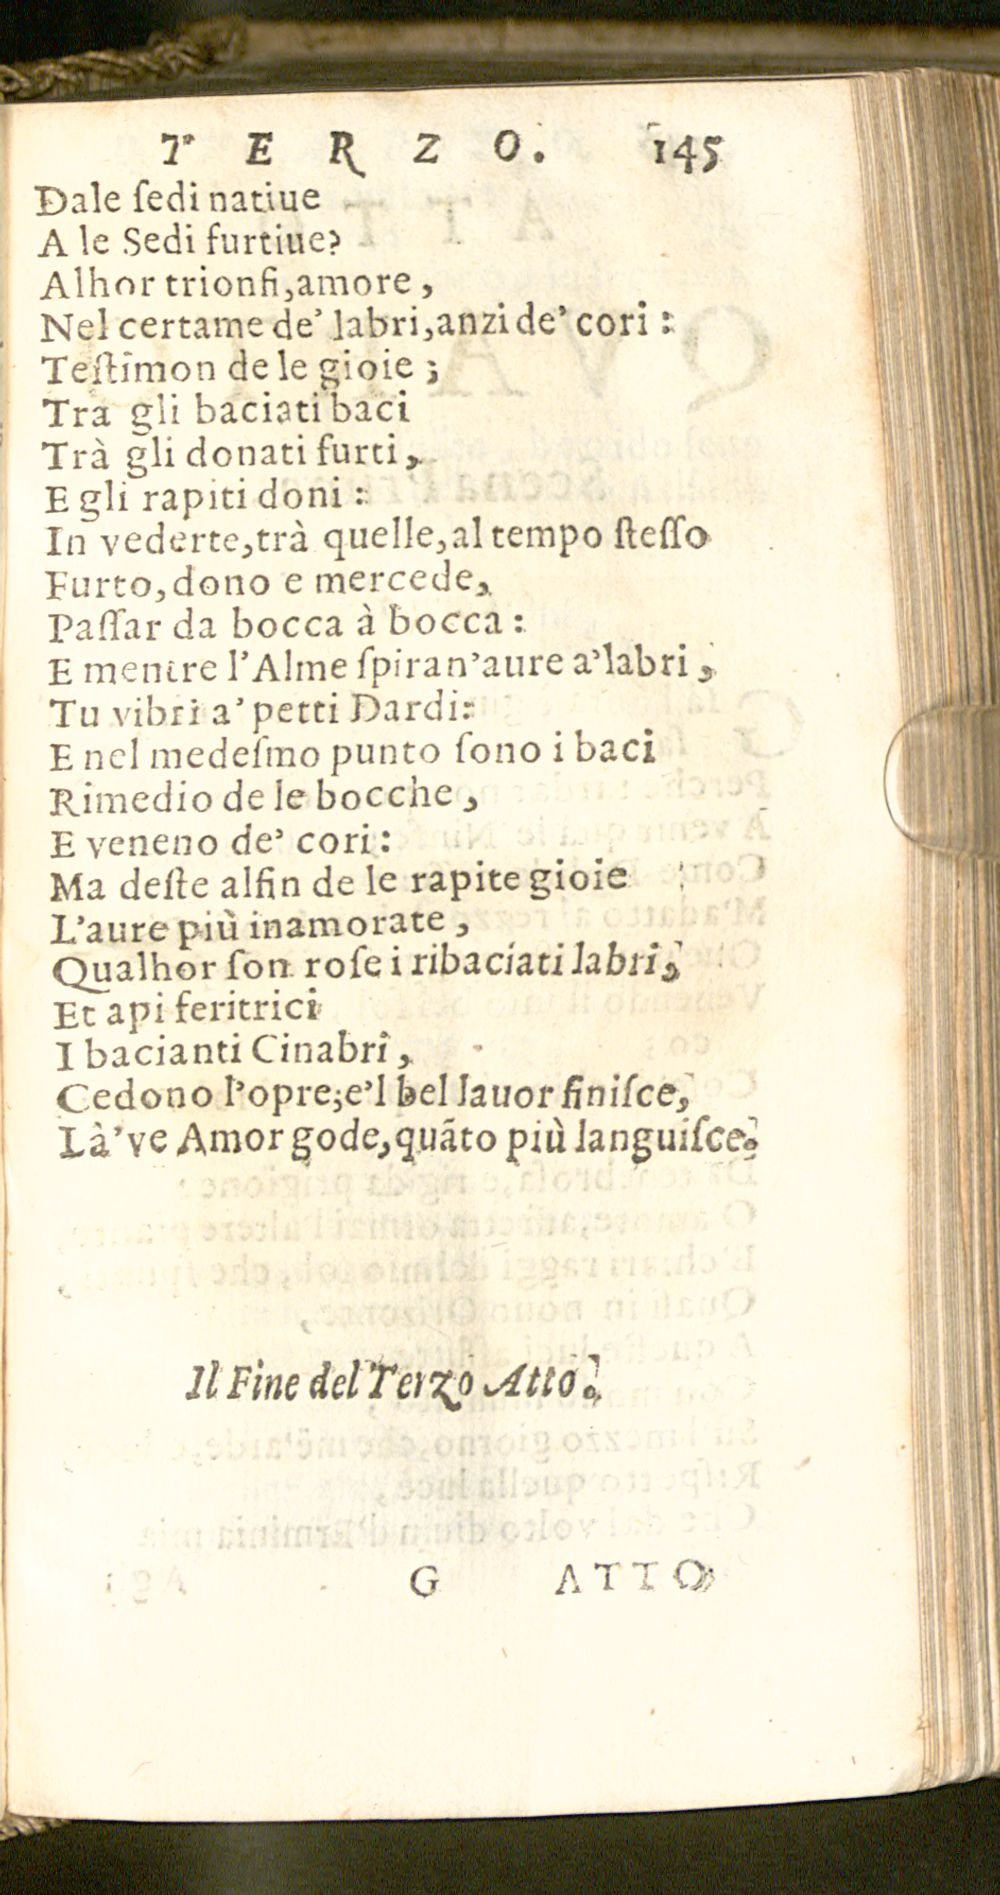 TERZO. 145
Dale ſedi natiue
A le Sedi furtiue?
Alhor trionfi,amore,
Nel certame de' labri,anzi de' cori:
Teſtimon de le gioie;
Tra gli baciati baci
Trà gli donati furti,
E gli rapiti doni:
In vederte,trà quelle,al tempo ſteſſo
Furto,dono e mercede,
Paſſar da bocca à bocca:
E mentre l'Alme ſpiran'aure a'labri,
Tu vibri a' petti Dardi:
E nel medeſmo punto ſono i baci
Rimedio de le bocche,
E veneno de' cori:
Ma deſte alfin de le rapite gioie
L'aure più inamorate,
Qualhor ſon roſe i ribaciati labri,
Et api feritrici
I bacianti Cinabri,
Cedono l'opre;e'l bel lauor finiſce,
Là've Amor gode,quãto più languiſce.
Il Fine del Terzo Atto.
G ATTO